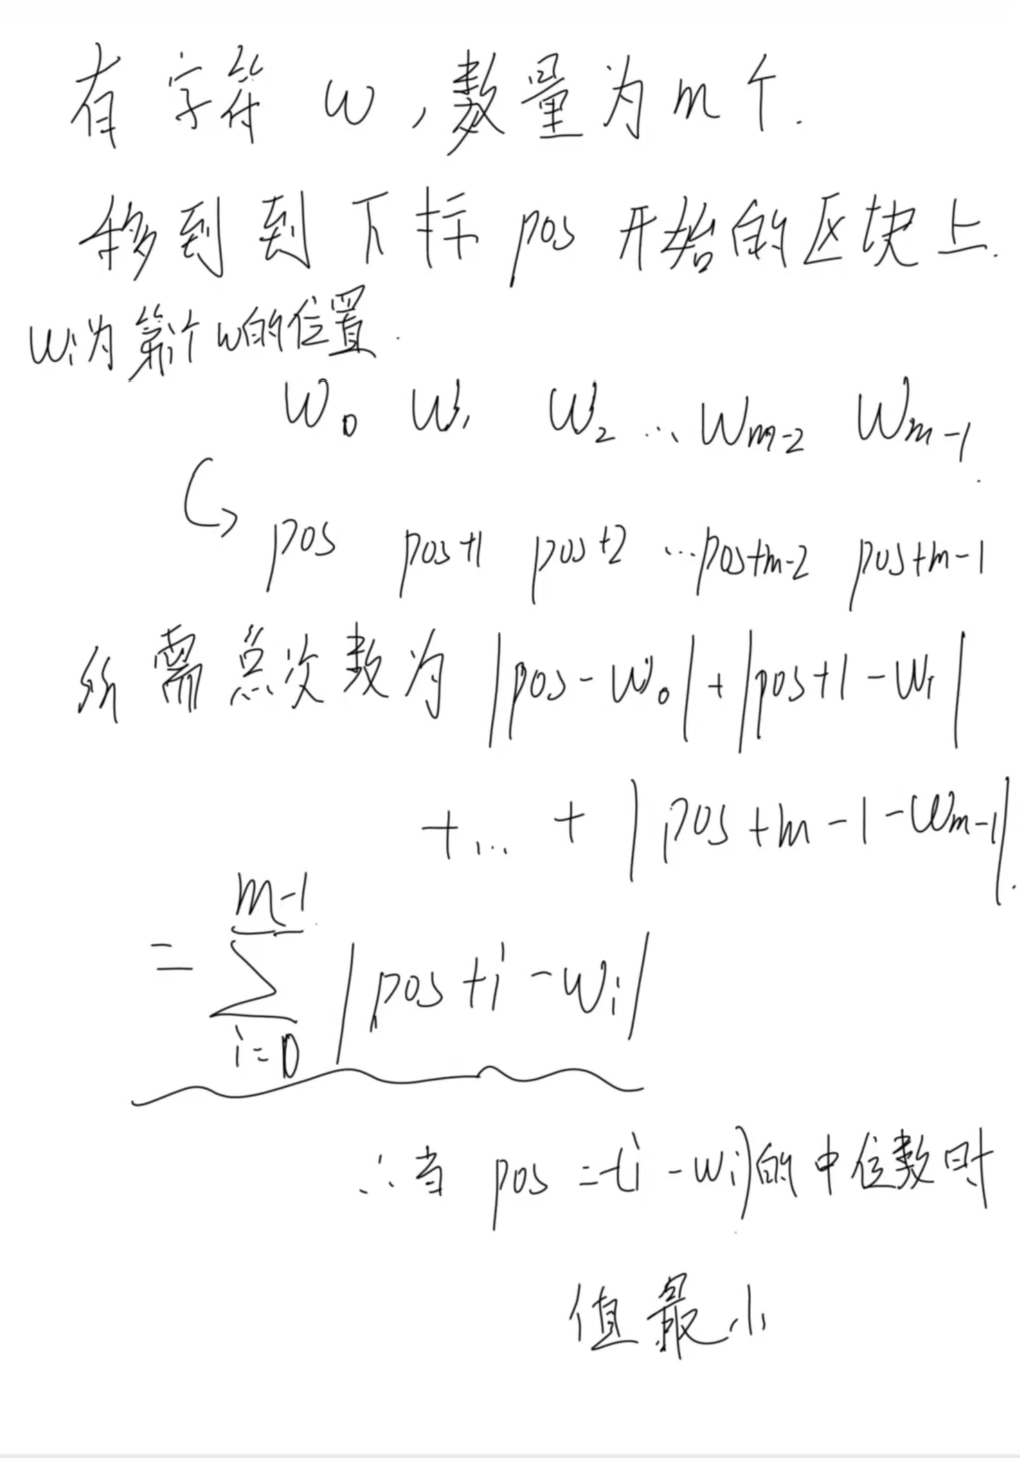 有字符 w，数量为 m 个.
移到到下标 pos 开始的区块上.
wi为第i个w的位置.
w0 w1 w2 ... wm-2 wm-1
↳ pos pos+1 pos+2 ...pos+m-2 pos+m-1
所需总次数为 |pos-w0|+|pos+1-w1|
+...+|pos+m-1-wm-1|.
m-1
=∑|pos+i-wi|
i=0
∴当 pos=-(i-wi)的中位数时
值最小